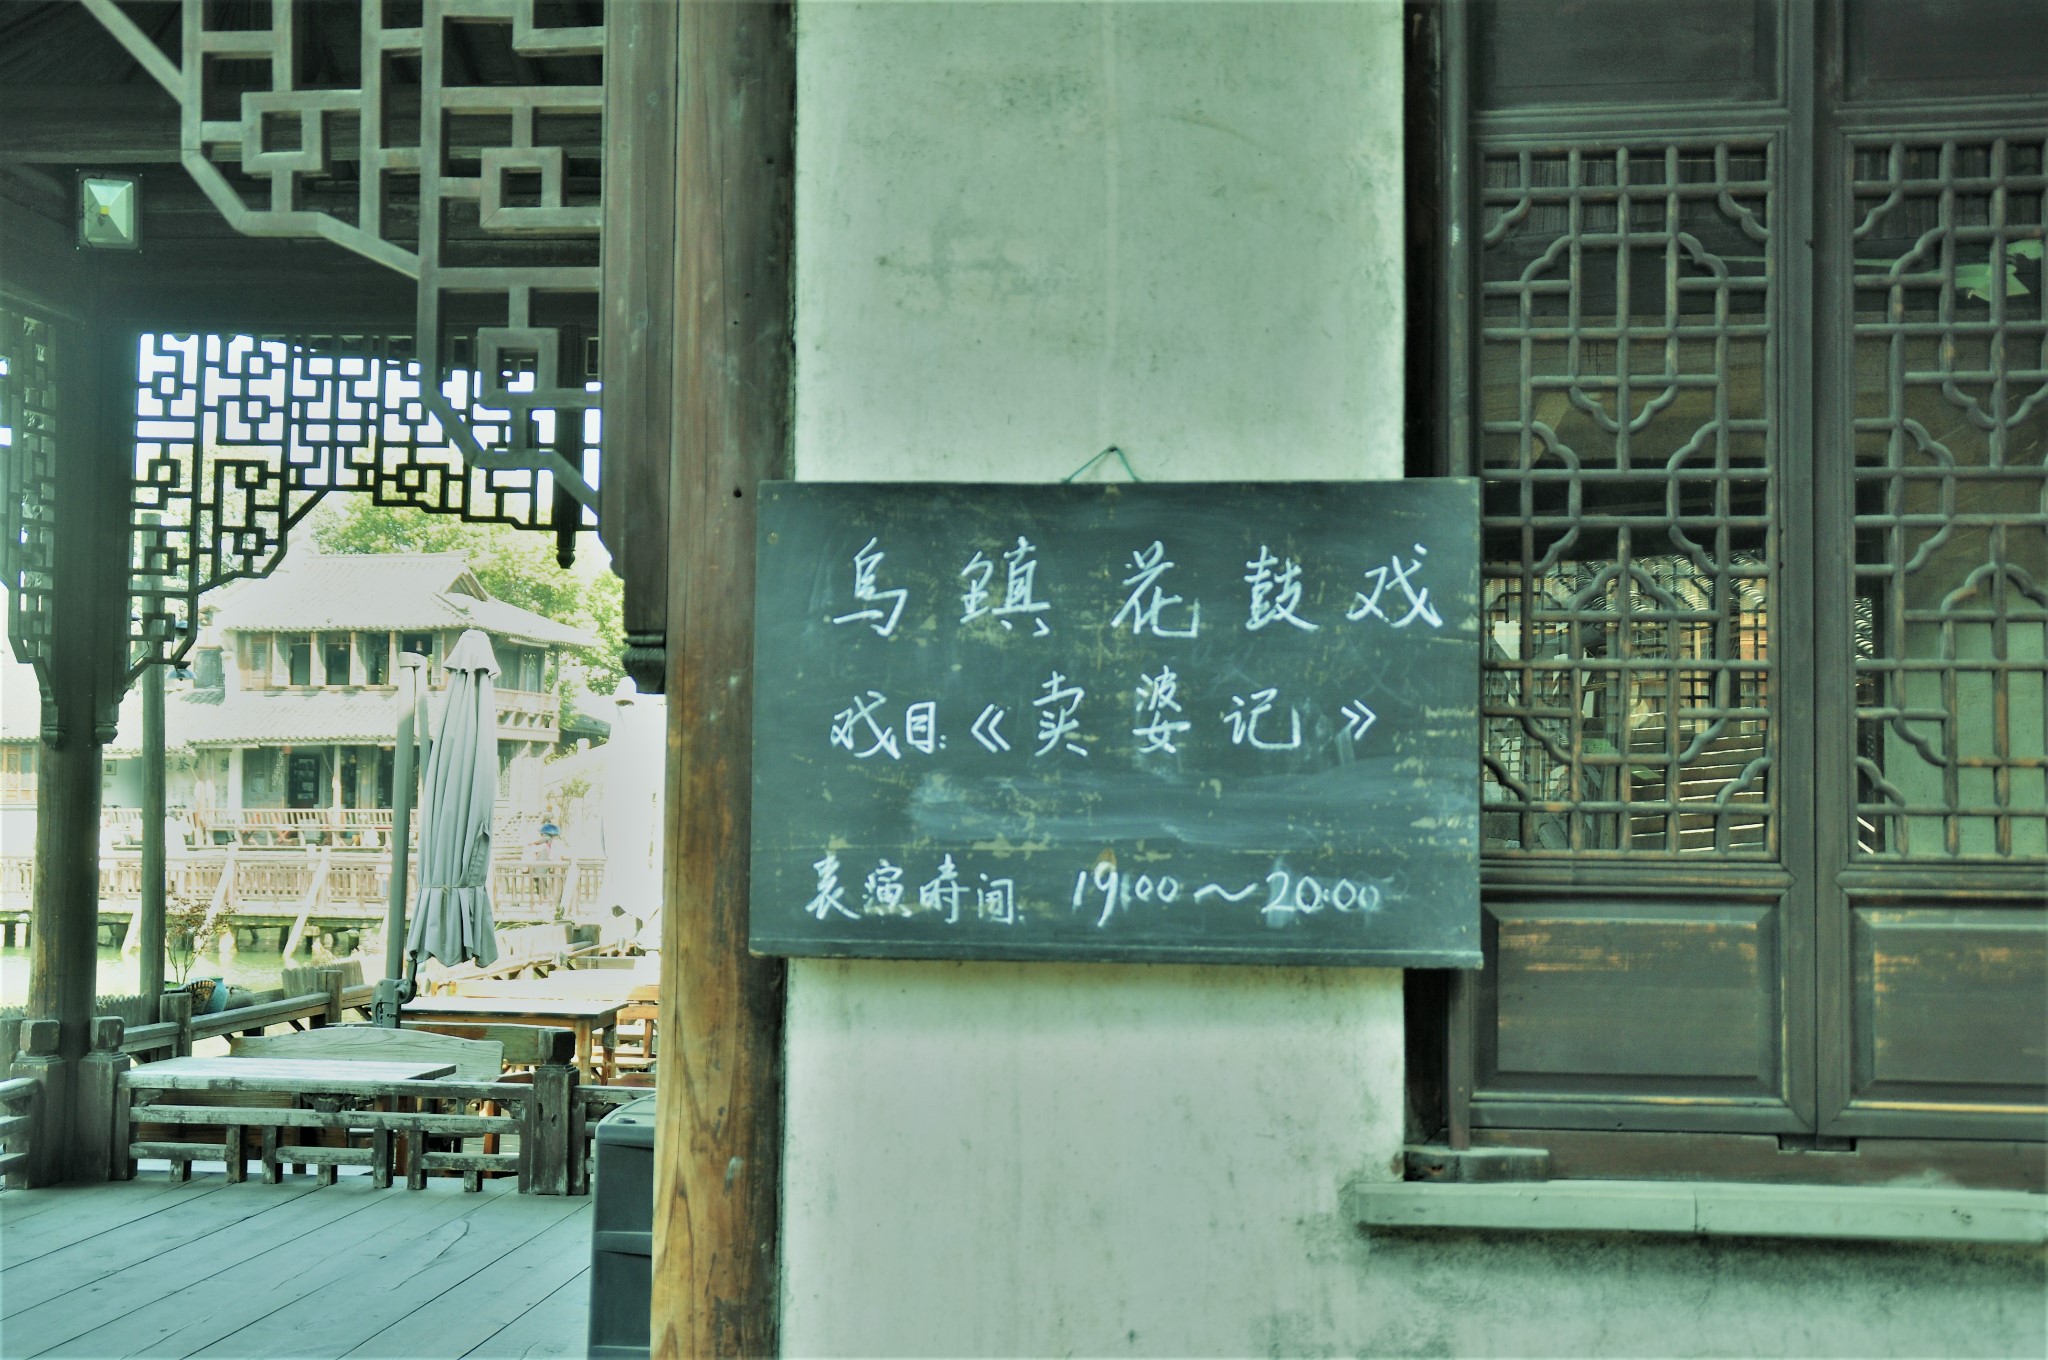 乌鎮花鼓戏
戏目:《卖婆记》
表演時间: 19:00～20:00